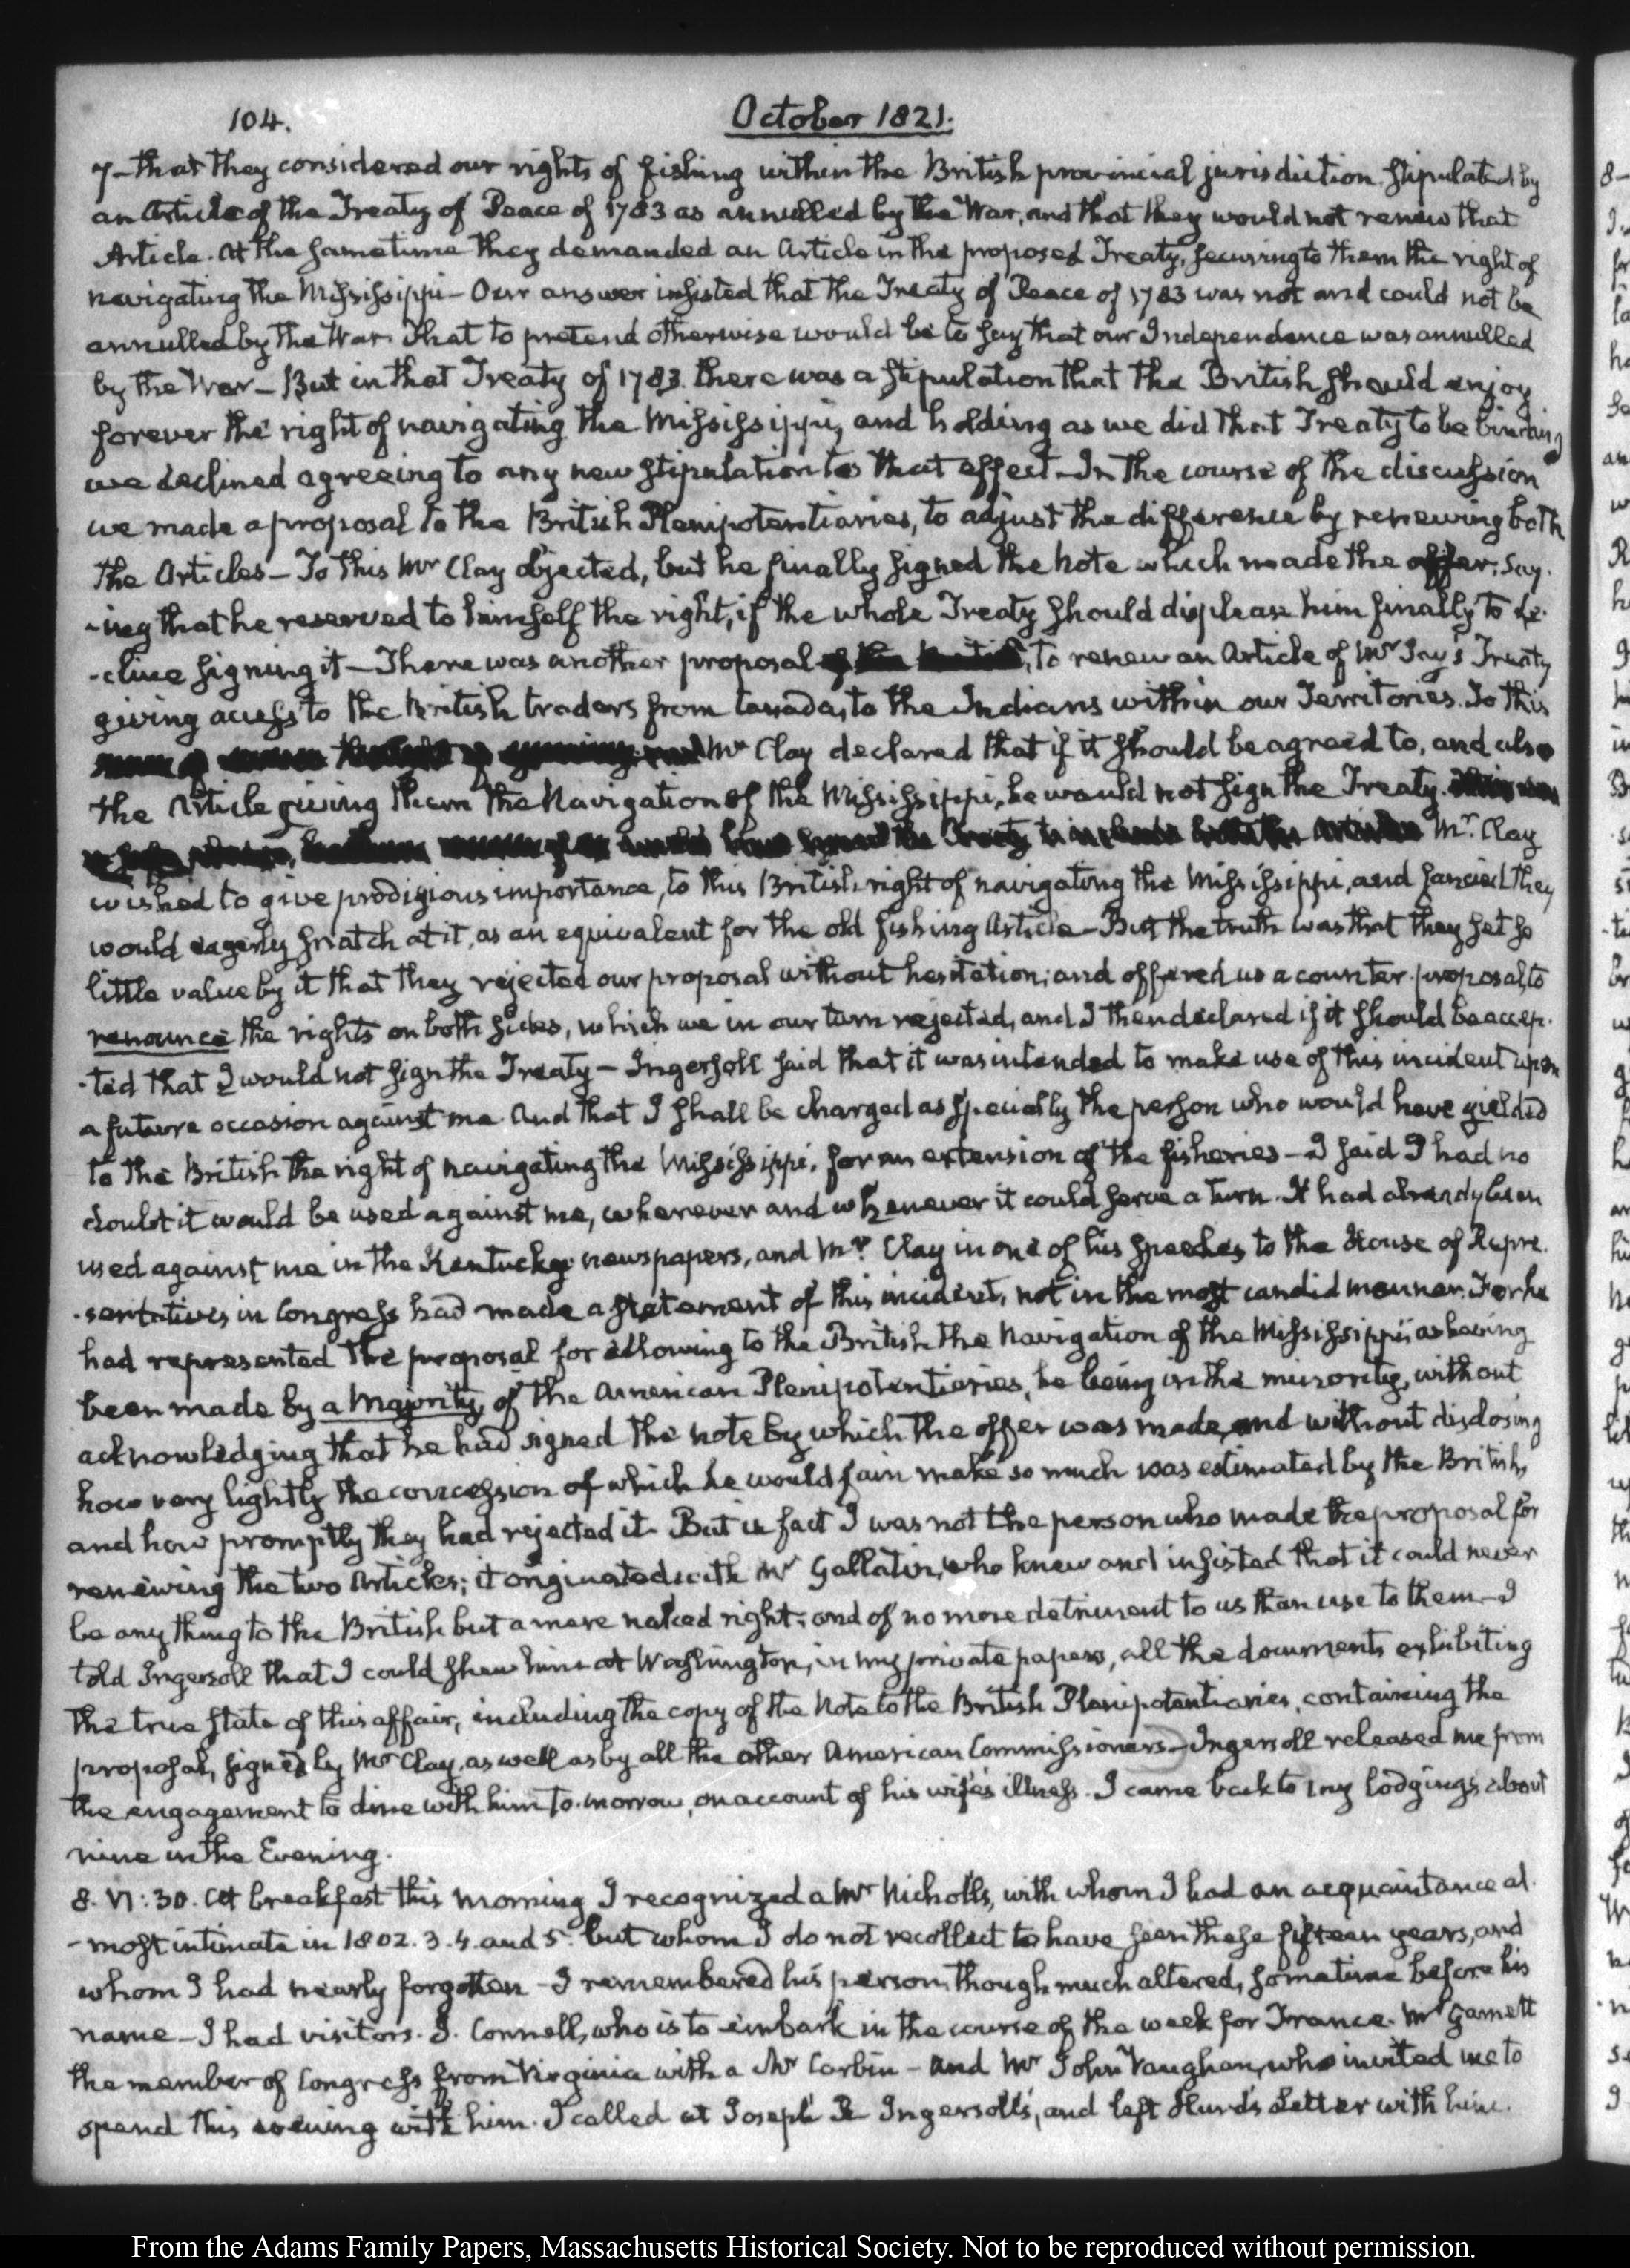 104.
October 1821.
7– that they considered our rights of fishing within the British provincial jurisdiction, stipulated by
an Article of the Treaty of Peace of 1783 as annulled by the War, and that they would not renew that
Article. At the same time they demanded an Article in the proposed Treaty, securing to them the right of
navigating the Mississippi– Our answer insisted that the Treaty of Peace of 1783 was not and could not be
annulled by the War. That to pretend otherwise would be to say that our Independence was annulled
by the War– But in that Treaty of 1783 there was a stipulation that the British should enjoy
forever the right of navigating the Mississippi, and holding as we did that Treaty to be binding
we declined agreeing to any new stipulation to that effect– In the course of the discussion
we made a proposal to the British Plenipotentiaries, to adjust the difference by renewing both
the Articles– To this Mr Clay objected, but he finally signed the Note which made the offer; say-
-ing that he reserved to himself the right, if the whole Treaty should displease him finally to de-
-cline signing it– There was another proposal, to renew an Article of Mr Jay's Treaty
giving access to the British traders from Canada, to the Indians within our Territories. To this
Mr Clay declared that if it should be agreed to, and also
the Article giving them the Navigation of the Mississippi, he would not sign the Treaty.
Mr. Clay
wished to give prodigious importance, to this British right of navigating the Mississippi, and fancied they
would eagerly snatch at it, as an equivalent for the old fishing Article– But the truth was that they set so
little value by it that they rejected our proposal without hesitation; and offered us a counter-proposal, to
renounce the rights on both sides, which we in our turn rejected, and I then declared if it should be accep-
-ted that I would not sign the Treaty– Ingersoll said that it was intended to make use of this incident upon
a future occasion against me. And that I shall be charged as specially the person who would have yielded
to the British the right of navigating the Mississippi, for an extension of the fisheries– I said I had no
doubt it would be used against me, wherever and whenever it could serve a turn. It had already been
used against me in the Kentucky newspapers, and Mr. Clay in one of his speeches to the House of Repre-
-sentatives in Congress had made a statement of this incident, not in the most candid manner. For he
had represented the proposal for allowing to the British the Navigation of the Mississippi as having
been made by a Majority, of the American Plenipotentiaries, he being in the minority, without
acknowledging that he had signed the note by which the offer was made, and without disclosing
how very lightly the concession of which he would fain make so much was estimated by the British,
and how promptly they had rejected it. But in fact I was not the person who made the proposal for
renewing the two Articles; it originated with Mr Gallatin, who knew and insisted that it could never
be any thing to the British but a mere naked right; and of no more detriment to us than use to them– I
told Ingersoll that I could shew him at Washington, in my private papers, all the documents exhibiting
the true state of this affair, including the copy of the Note to the British Plenipotentiaries, containing the
proposal, signed by Mr Clay, as well as by all the other American Commissioners– Ingersoll released me from
the engagement to dine with him to-morrow, on account of his wife's illness. I came back to my lodgings about
nine in the Evening.
8. VI:30. At breakfast this morning I recognized a Mr Nicholls, with whom I had an acquaintance al-
-most intimate in 1802. 3. 4. and 5. but whom I do not recollect to have seen these fifteen years, and
whom I had nearly forgotten– I remembered his person, though much altered, sometime before his
name– I had visitors. J. Connell, who is to embark in the course of the week for France. Mr Garnett
the member of Congress from Virginia with a Mr Corbin– and Mr John Vaughan, who invited me to
spend this evening with him. I called at Joseph R Ingersoll's, and left Hurd's Letter with him.
From the Adams Family Papers, Massachusetts Historical Society. Not to be reproduced without permission.